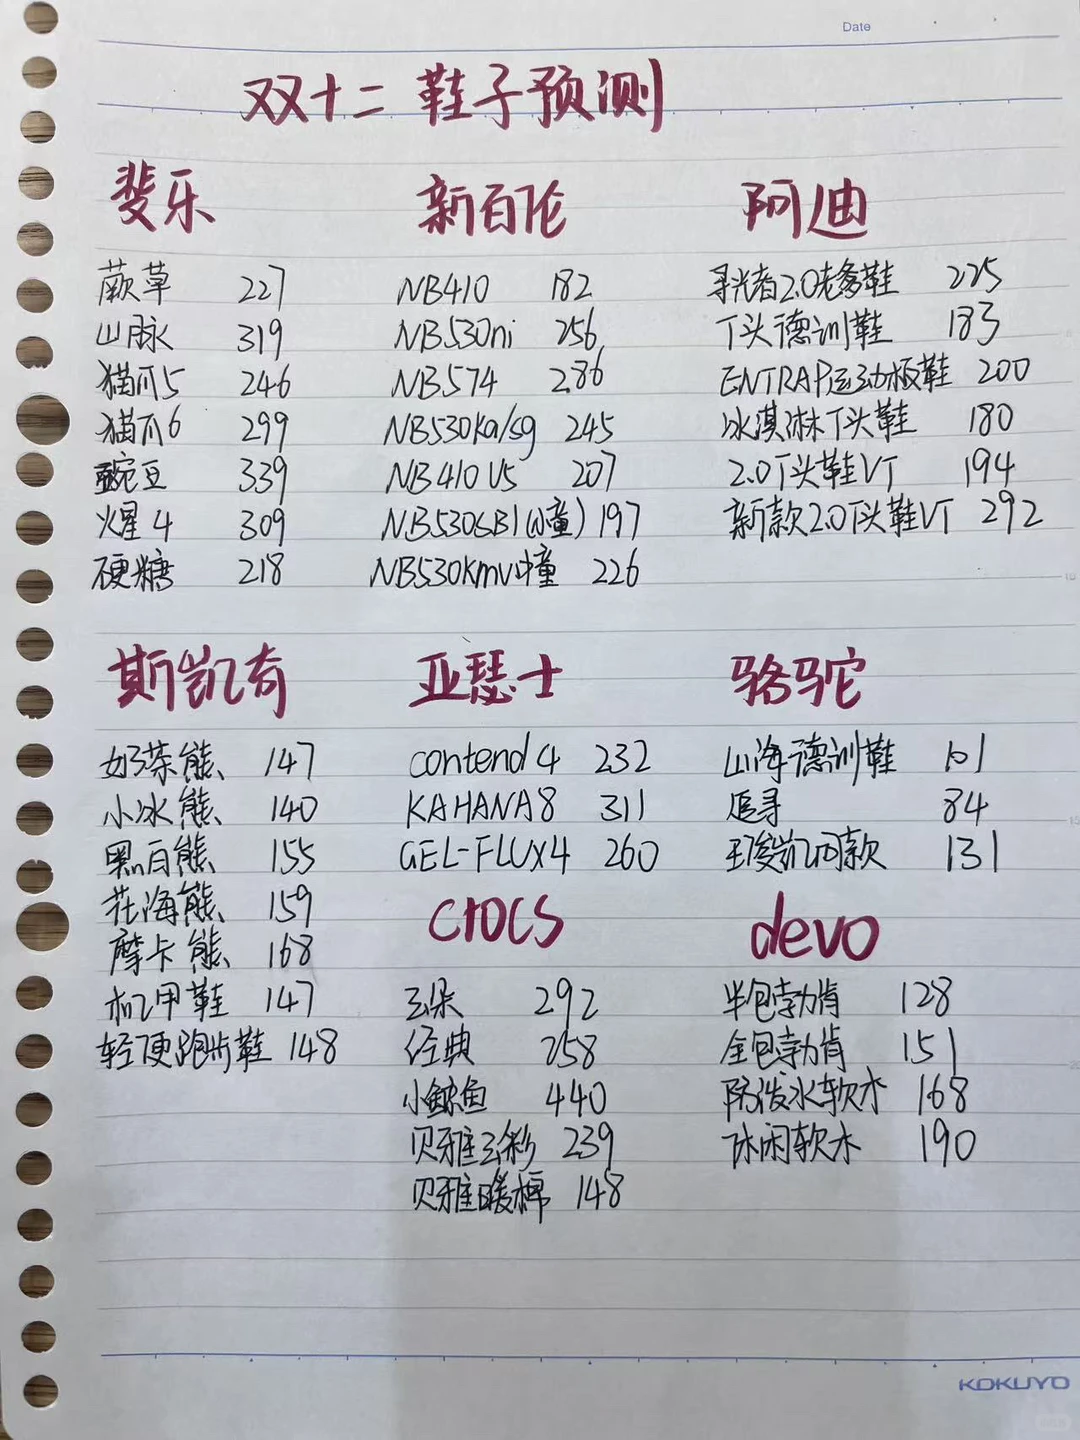 Date
双十二 鞋子预测
斐乐
蕨草 227
山脉 319
猫爪5 246
猫爪6 299
豌豆 339
火星4 309
硬糖 218
新百伦
NB410 182
NB530ni 256
NB574 286
NB530Ka/sg 245
NB410 V5 207
NB530SB1(小童) 197
NB530Kmv中童 226
阿迪
寻光者2.0老爹鞋 225
T头德训鞋 183
ENTRAP运动板鞋 200
冰淇淋T头鞋 180
2.0T头鞋VT 194
新款2.0T头鞋VT 292
斯凯奇
奶茶熊 147
小冰熊 140
黑白熊 155
花海熊 159
摩卡熊 168
机甲鞋 147
轻便跑步鞋 148
亚瑟士
contend 4 232
KAHANA8 311
GEL-FLUX4 260
骆驼
山海德训鞋 101
追寻 84
王俊凯同款 131
crocs
云朵 292
经典 258
小鲸鱼 440
贝雅云彩 239
贝雅暖棉 148
devo
半包勃肯 128
全包勃肯 151
防泼水软木 168
休闲软木 190
KOKUYO